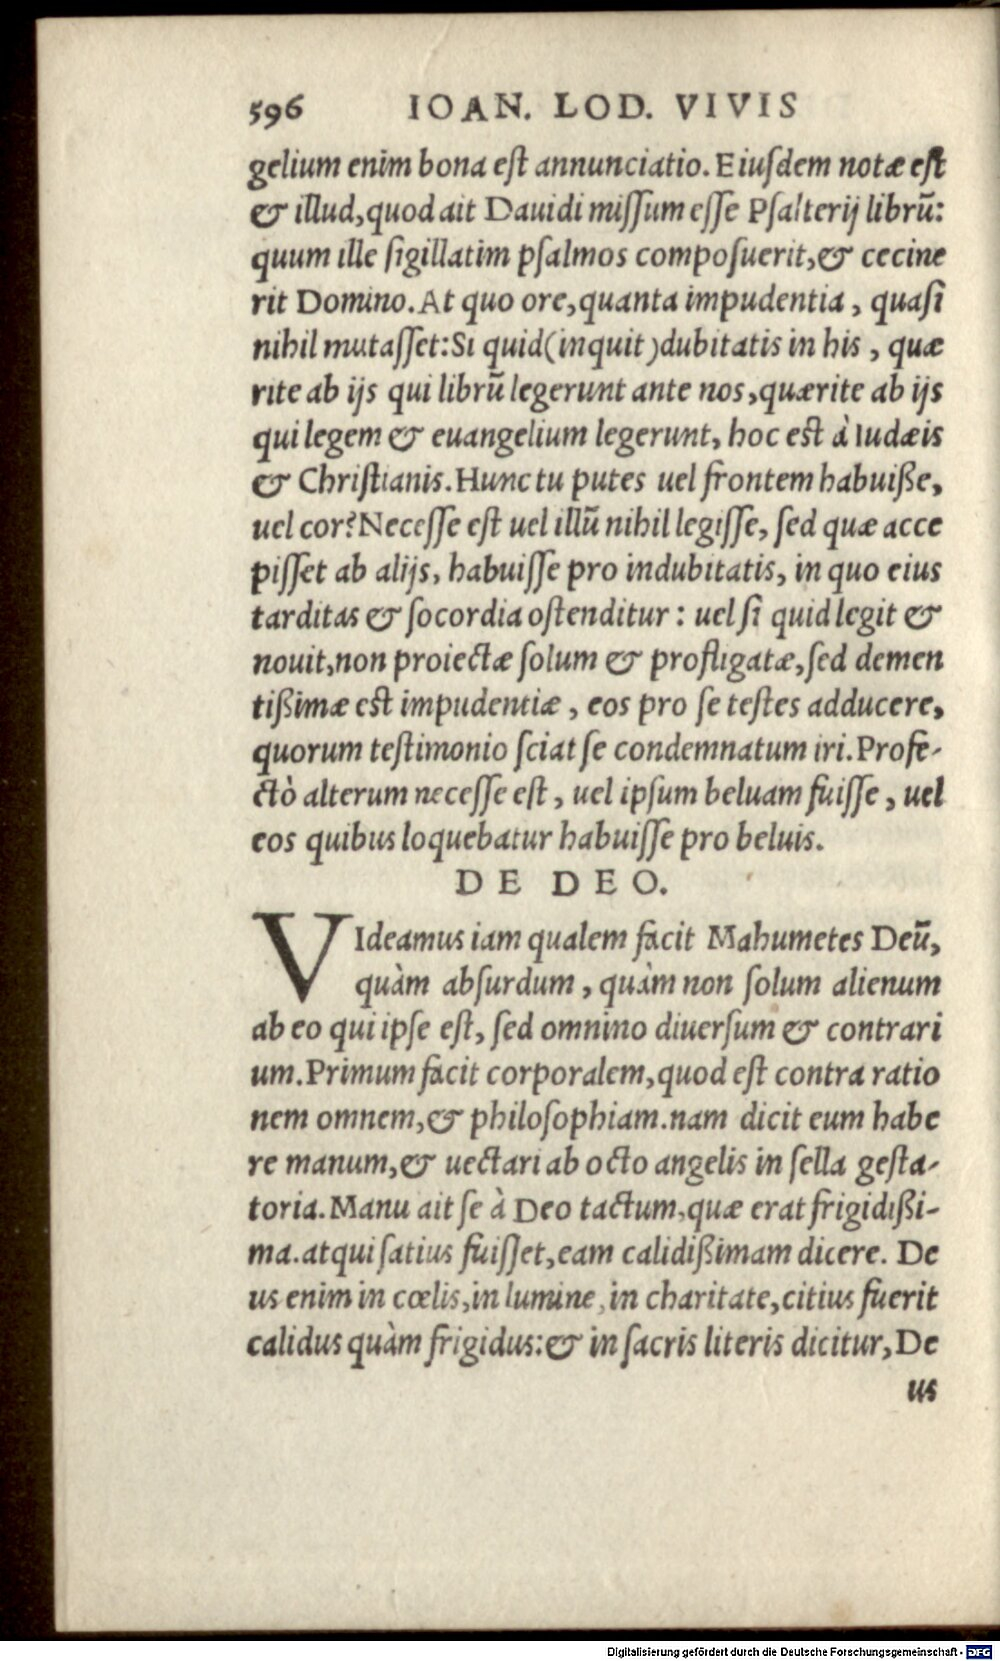 596 IOAN. LOD. VIVIS
gelium enim bona eſt annunciatio. Eiuſdem notæ eſt
& illud, quod ait Dauidi miſſum eſſe Pſalterij librū:
quum ille ſigillatim pſalmos compoſuerit, & cecine
rit Domino. At quo ore, quanta impudentia, quaſi
nihil mutaſſet: Si quid (inquit) dubitatis in his, quæ
rite ab ijs qui librū legerunt ante nos, quærite ab ijs
qui legem & euangelium legerunt, hoc est à Iudæis
& Chriſtianis. Hunc tu putes uel frontem habuiße,
uel cor? Neceſſe eſt uel illū nihil legiſſe, ſed quæ acce
piſſet ab alijs, habuiſſe pro indubitatis, in quo eius
tarditas & ſocordia oſtenditur: uel ſi quid legit &
nouit, non proiectæ ſolum & profligatæ, ſed demen
tißimæ est impudentiæ, eos pro ſe teſtes adducere,
quorum teſtimonio ſciat ſe condemnatum iri. Profe-
ctò alterum neceſſe eſt, uel ipſum beluam fuiſſe, uel
eos quibus loquebatur habuiſſe pro beluis.
DE DEO.
VIdeamus iam qualem facit Mahumetes Deū,
quàm abſurdum, quàm non ſolum alienum
ab eo qui ipſe eſt, ſed omnino diuerſum & contrari
um. Primum facit corporalem, quod eſt contra ratio
nem omnem, & philoſophiam. nam dicit eum habe
re manum, & uectari ab octo angelis in ſella geſta-
toria. Manu ait ſe à Deo tactum, quæ erat frigidißi-
ma. atqui ſatius fuiſſet, eam calidißimam dicere. De
us enim in cœlis, in lumine, in charitate, citius fuerit
calidus quàm frigidus: & in ſacris literis dicitur, De
us
Digitalisierung gefördert durch die Deutsche Forschungsgemeinschaft - DFG